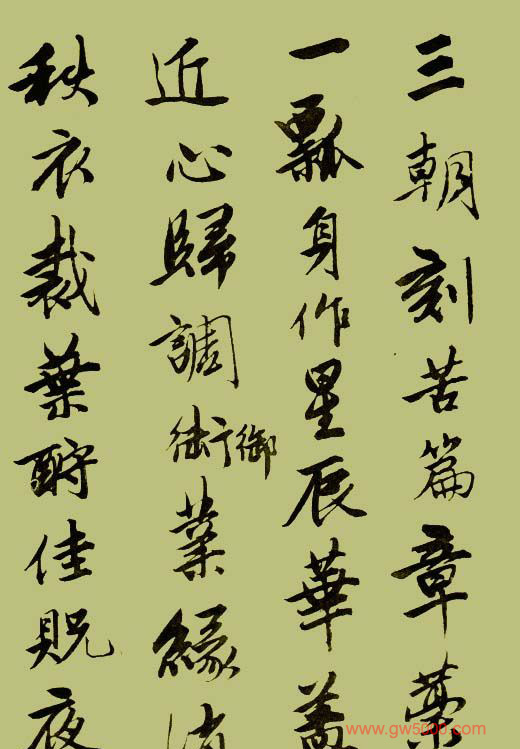 三朝刻苦篇章
一瓢身作星辰華蓋
近心歸調街御葉緣
秋衣裁葉酹佳貺夜
www.gw5000.com